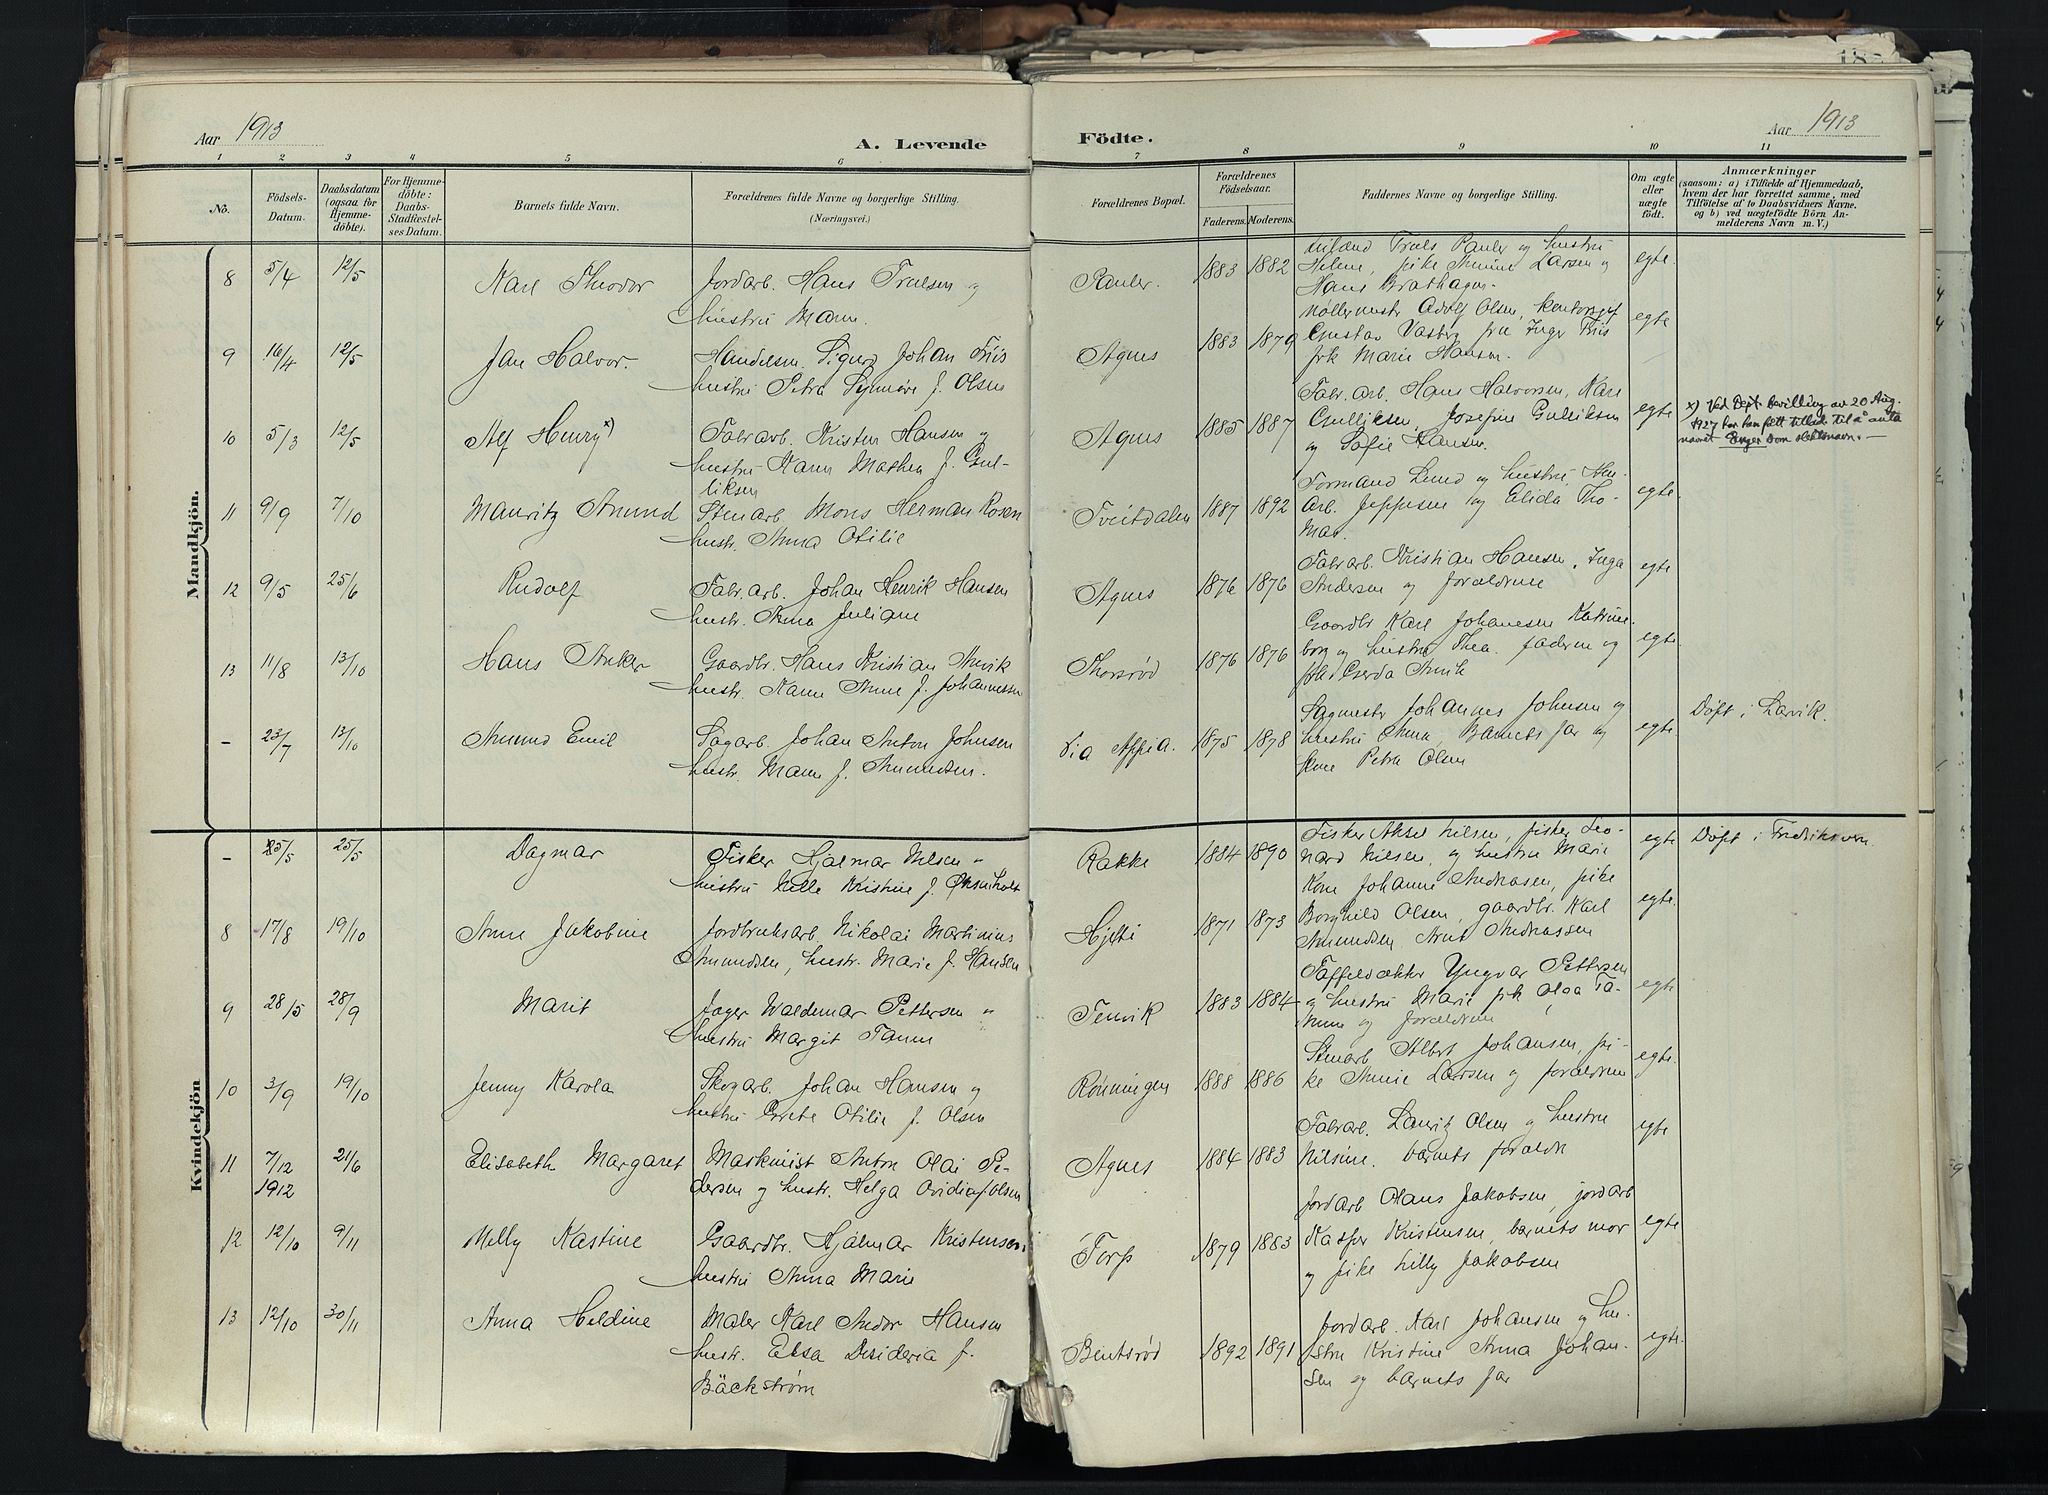 Aar 1913
A. Levende
Födte.
Aar 1913
1 2 3 4 5 6 7 8 9 10 11
No.
Födsels-
Datum.
Daabsdatum
(ogsaa for
Hjemme-
döbte).
For Hjemme-
döbte:
Daabs-
Stadfæstel-
ses Datum.
Barnets fulde Navn.
Forældrenes fulde Navne og borgerlige Stilling.
(Næringsvei.)
Forældrenes Bopæl.
Forældrenes
Födselsaar.
Faderens. Moderens.
Faddernes Navne og borgerlige Stilling.
Om ægte
eller
uægte
födt.
Anmærkninger
(saasom: a) i Tilfælde af Hjemmedaab,
hvem der har forrettet samme, med
Tilföielse af to Daabsvidners Navne.
og b) ved uægtefödte Börn An-
melderens Navn m. V.)
Mandkjön.
8 5/4 12/5 Karl Theodor Jordarb. Hans Truelsen og
hustru Maren.
Pauler. 1883 1882 Truels Pauler og hustru
Helene, pike Larsen og
Hans
egte.
9 16/4 12/5 Jan Halvor. Sigurd Johan Friis
hustru Petra Synnöve f. Olsen
Agnes 1883 1879 Möllermestr Adolf Olsen,
Gustav fru Inger Friis
frk Marie Hansen.
egte
10 5/3 12/5 Alf Henry x) Fabrarb. Kristen Hansen og
hustru Karen Mathea f. Gul-
liksen
Agnes 1885 1887 Fabr. arb. Hans Halvorsen, Karl
Gulliksen, Josefine Gulliksen
og Sofie Hansen.
egte
x) Ved Dept. bevilling av 20 Aug.
1927 har han fått tillade til å anta
navnet Enger som slektsnavn. —
11 9/9 7/10 Mauritz Amund Stenarb Mons Herman Rosen
hustr. Anna Otilie
Tveitdalen 1887 1892 Formand Lund og hustru,
Arb. Jeppesen og Elida Tho-
mas.
egte.
12 9/5 25/6 Rudolf Fabr. arb. Johan Henrik Hansen
hustr. Anna Juliane
Agnes 1876 1876 Fabr arb. Kristian Hansen, Inga
Andersen og forældrene
egte
13 11/8 13/10 Hans Anker Gaardbr. Hans Kristian Anvik
hustr. Karen Anne f. Johannessen
Thorsröd 1876 1876 Gaardbr Karl Johannesen Katrine-
borg og hustru Thea. faderen og
Gerda Anvik
egte.
– 23/7 13/10 Amund Emil Sagarb. Johan Anton Johnsen
hustr. Maren f. Amundsen.
Via Appia. 1875 1878 Sagmestr Johannes Johnsen og
hustru Anna, Barnets far og
Petra Olsen
egte
Döpt i Larvik.
Kvindekjön
– 25/5 Dagmar Fisker Hjalmar Nilsen
hustru Nille Kristine f. Oksenholt
Rakke 1884 1890 Fisker Aksel Nilsen, fisker Leo-
nard Nilsen, og hustru Marie
egte
Döpt i Fredriksvern
8 17/8 19/10 Anne Jakobine Jordbruksarb. Nikolai Martinius
Amundsen, hustr. Marie f. Hansen
Hjelti 1871 1873 Kone Johanne Andreasen, pike
Borghild Olsen, gaardbr. Karl
Amundsen, Arnt Andreassen
egte.
9 28/5 28/9 Marit Jæger Waldemar Pettersen
hustru Margit Tanum
Tenvik 1883 1884 Taffeldækker Yngvar Pettersen
og hustru Marie frk Olga Ta-
num og forældrene
egte
10 3/9 19/10 Jenny Karola Skogarb. Johan Hansen og
hustru Grete Otilie f. Olsen
Rönningen 1888 1886 Stenarb Albert Johansen, pi-
ke Annie Larsen og forældrene
egte.
11 7/12 1912 21/6 Elisabeth Margaret Maskinist Anton Olai Pe-
dersen og hustr. Helga Ovidia f. Olsen
Agnes 1884 1883 Fabrarb. Lauritz Olsen og hustru
Nilsine. barnets foræld
egte
12 12/10 9/11 Melly Kastine Gaardbr. Hjalmar Kristensen,
hustru Anna Marie
Torp 1879 1883 Jordarb Hans Jakobsen, jordarb
Kasper Kristensen, barnets mor
og pike Lilly Jakobsen
egte
13 12/10 30/11 Anna Heldine Maler Karl Andor Hansen
hustr. Elsa Desideria f.
Bäckström
Bentsröd 1892 1891 Jordarb. Karl Johansen og hu-
stru Kristine Anna Johan-
sen og barnets far
egte.